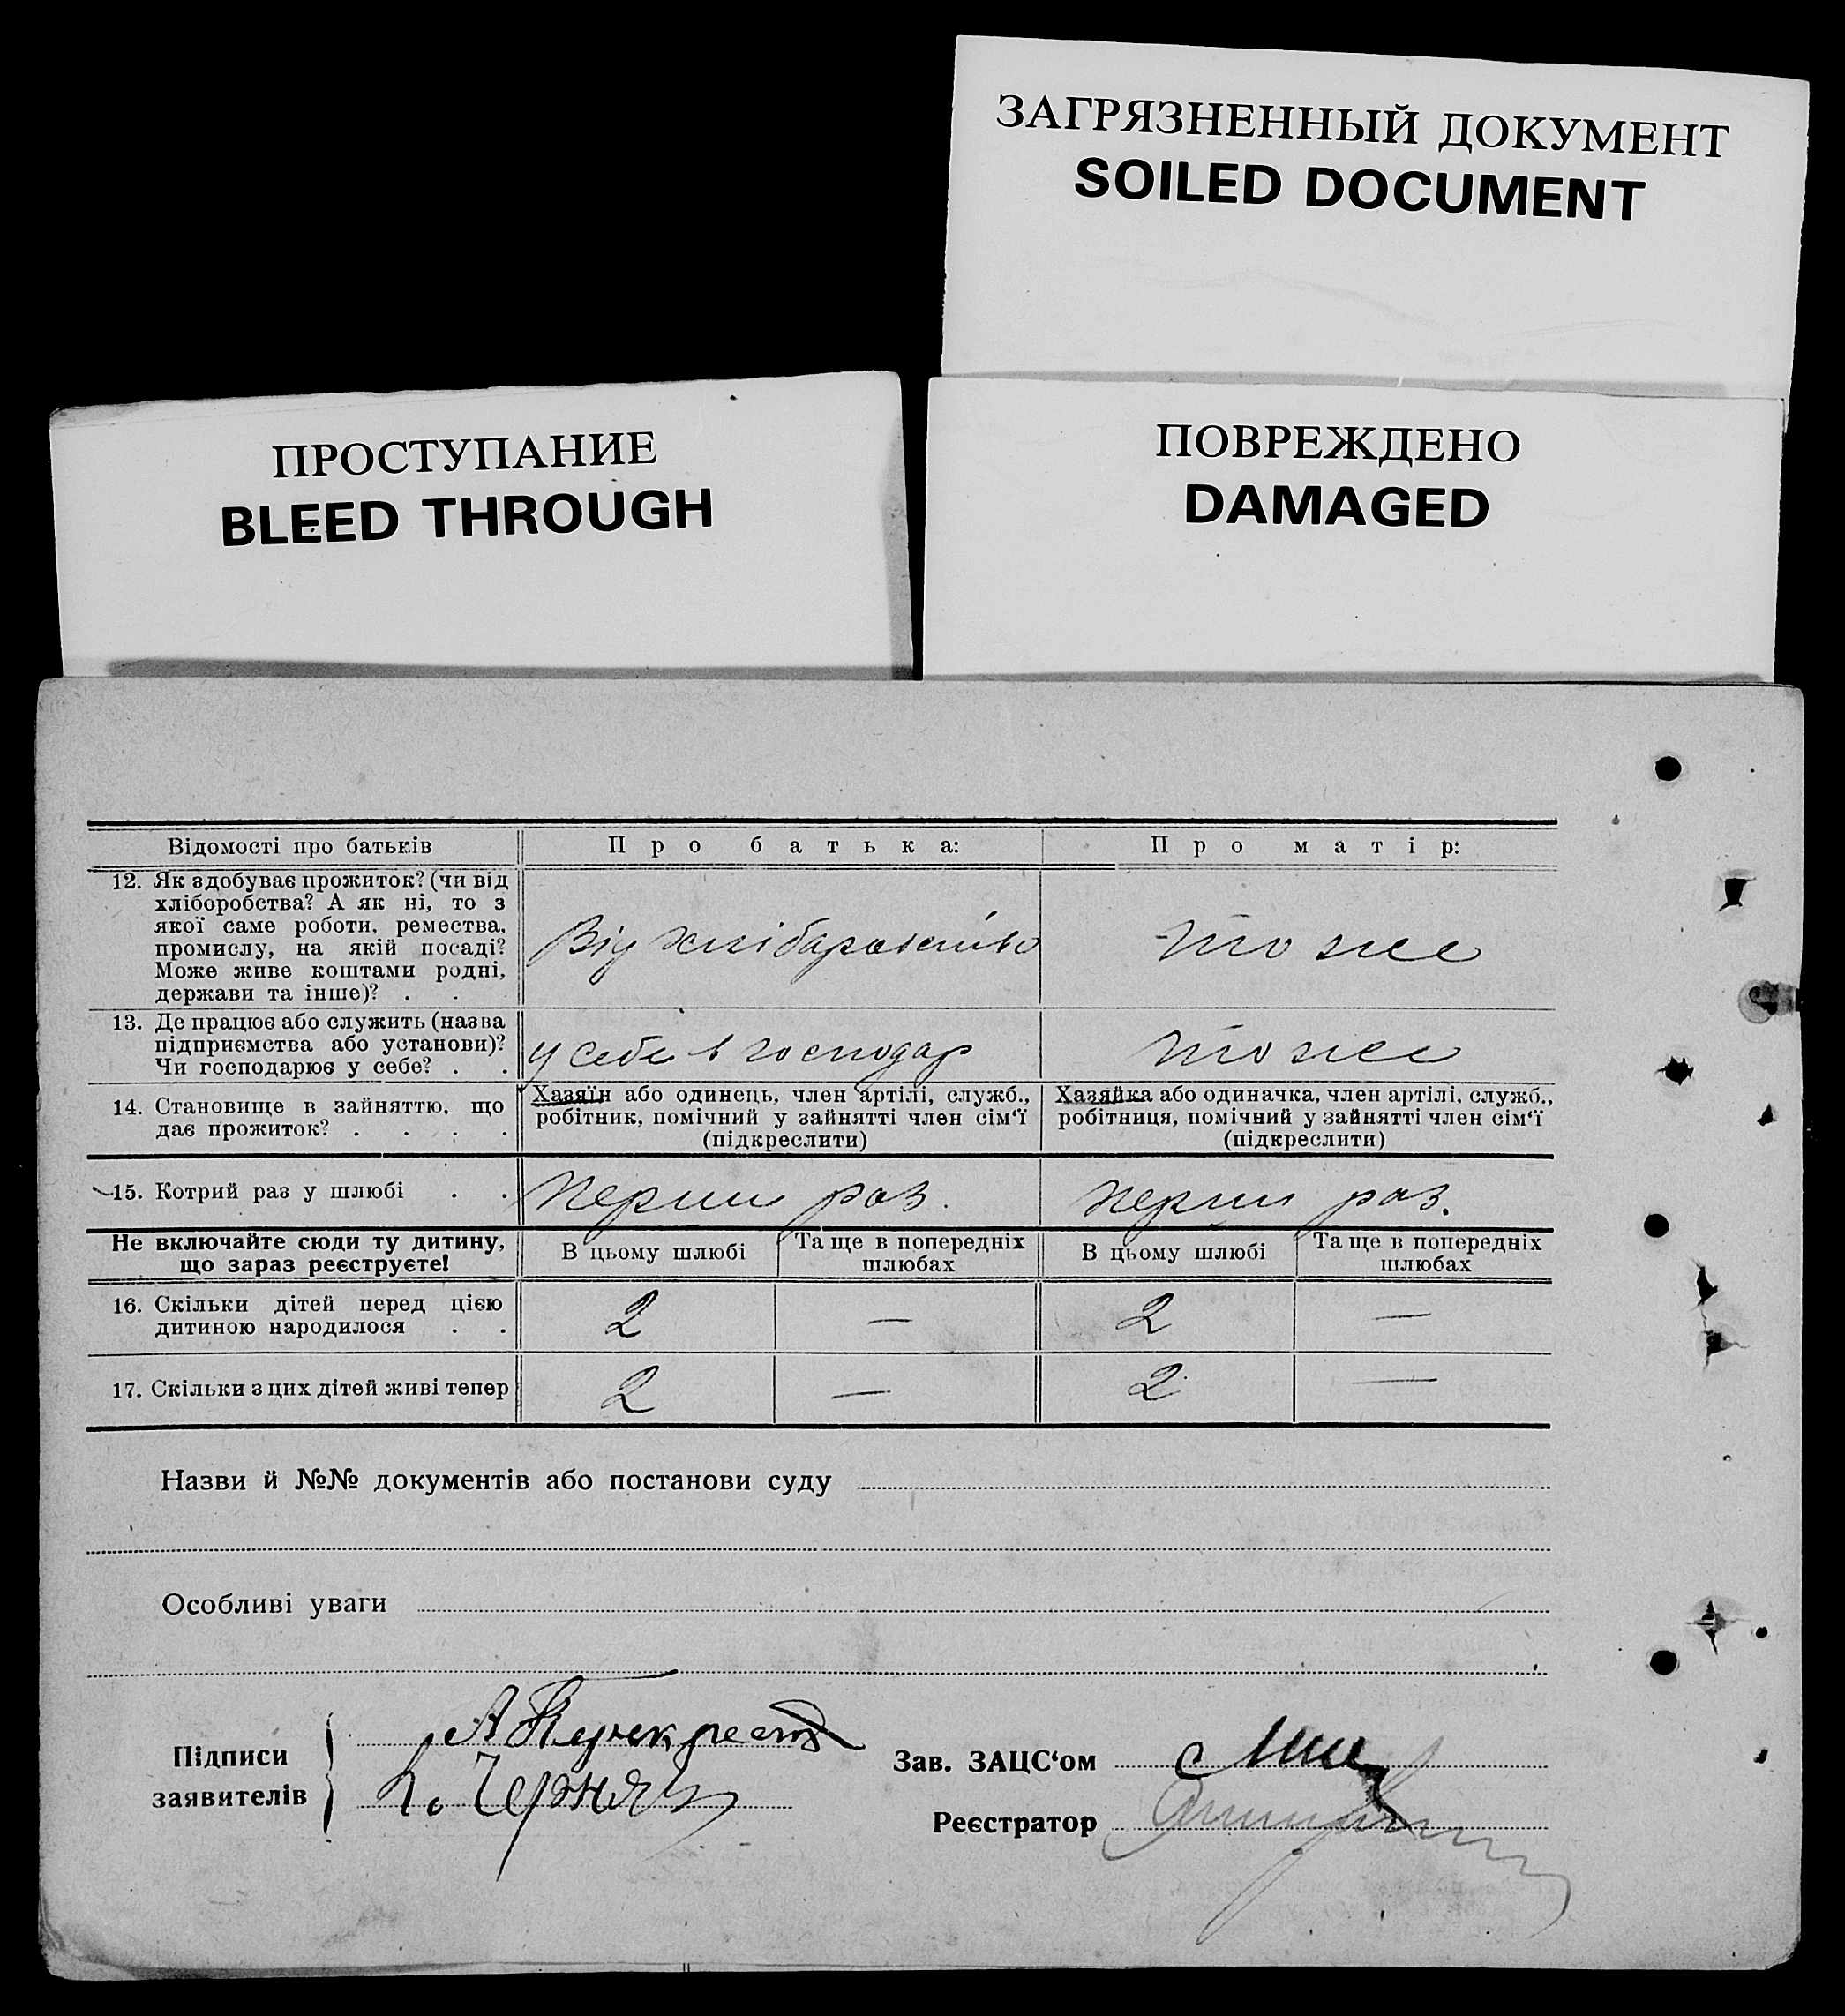 ЗАГРЯЗНЕННЫЙ ДОКУМЕНТ
SOILED DOCUMENT
ПРОСТУПАНИЕ
BLEED THROUGH
ПОВРЕЖДЕНО
DAMAGED
Відомості про батьків
Про батька:
Про матір:
12. Як здобуває прожиток? (чи від
хліборобства? А як ні, то з
якої саме роботи, ремества,
промислу, на якій посаді?
Може живе коштами родні,
держави та інше)? . .
Від хлібаробства
то же
13. Де працює або служить (назва
підприємства або установи)?
Чи господарює у себе? . .
у себе в господар
то же
14. Становище в зайняттю, що
дає прожиток? . . . .
Хазяїн або одинець, член артілі, служб.,
робітник, помічний у зайнятті член сім‘ї
(підкреслити)
Хазяйка або одиначка, член артілі, служб.,
робітниця, помічний у зайнятті член сім‘ї
(підкреслити)
15. Котрий раз у шлюбі . .
перши раз.
перши раз.
Не включайте сюди ту дитину,
що зараз реєструєте!
В цьому шлюбі
Та ще в попередніх
шлюбах
В цьому шлюбі
Та ще в попередніх
шлюбах
16. Скільки дітей перед цією
дитиною народилося . .
2 — 2 —
17. Скільки з цих дітей живі тепер
2 — 2 —
Назви й №№ документів або постанови суду
Особливі уваги
Підписи
заявителів
К. Черняк
Зав. ЗАЦС‘ом
Реєстратор